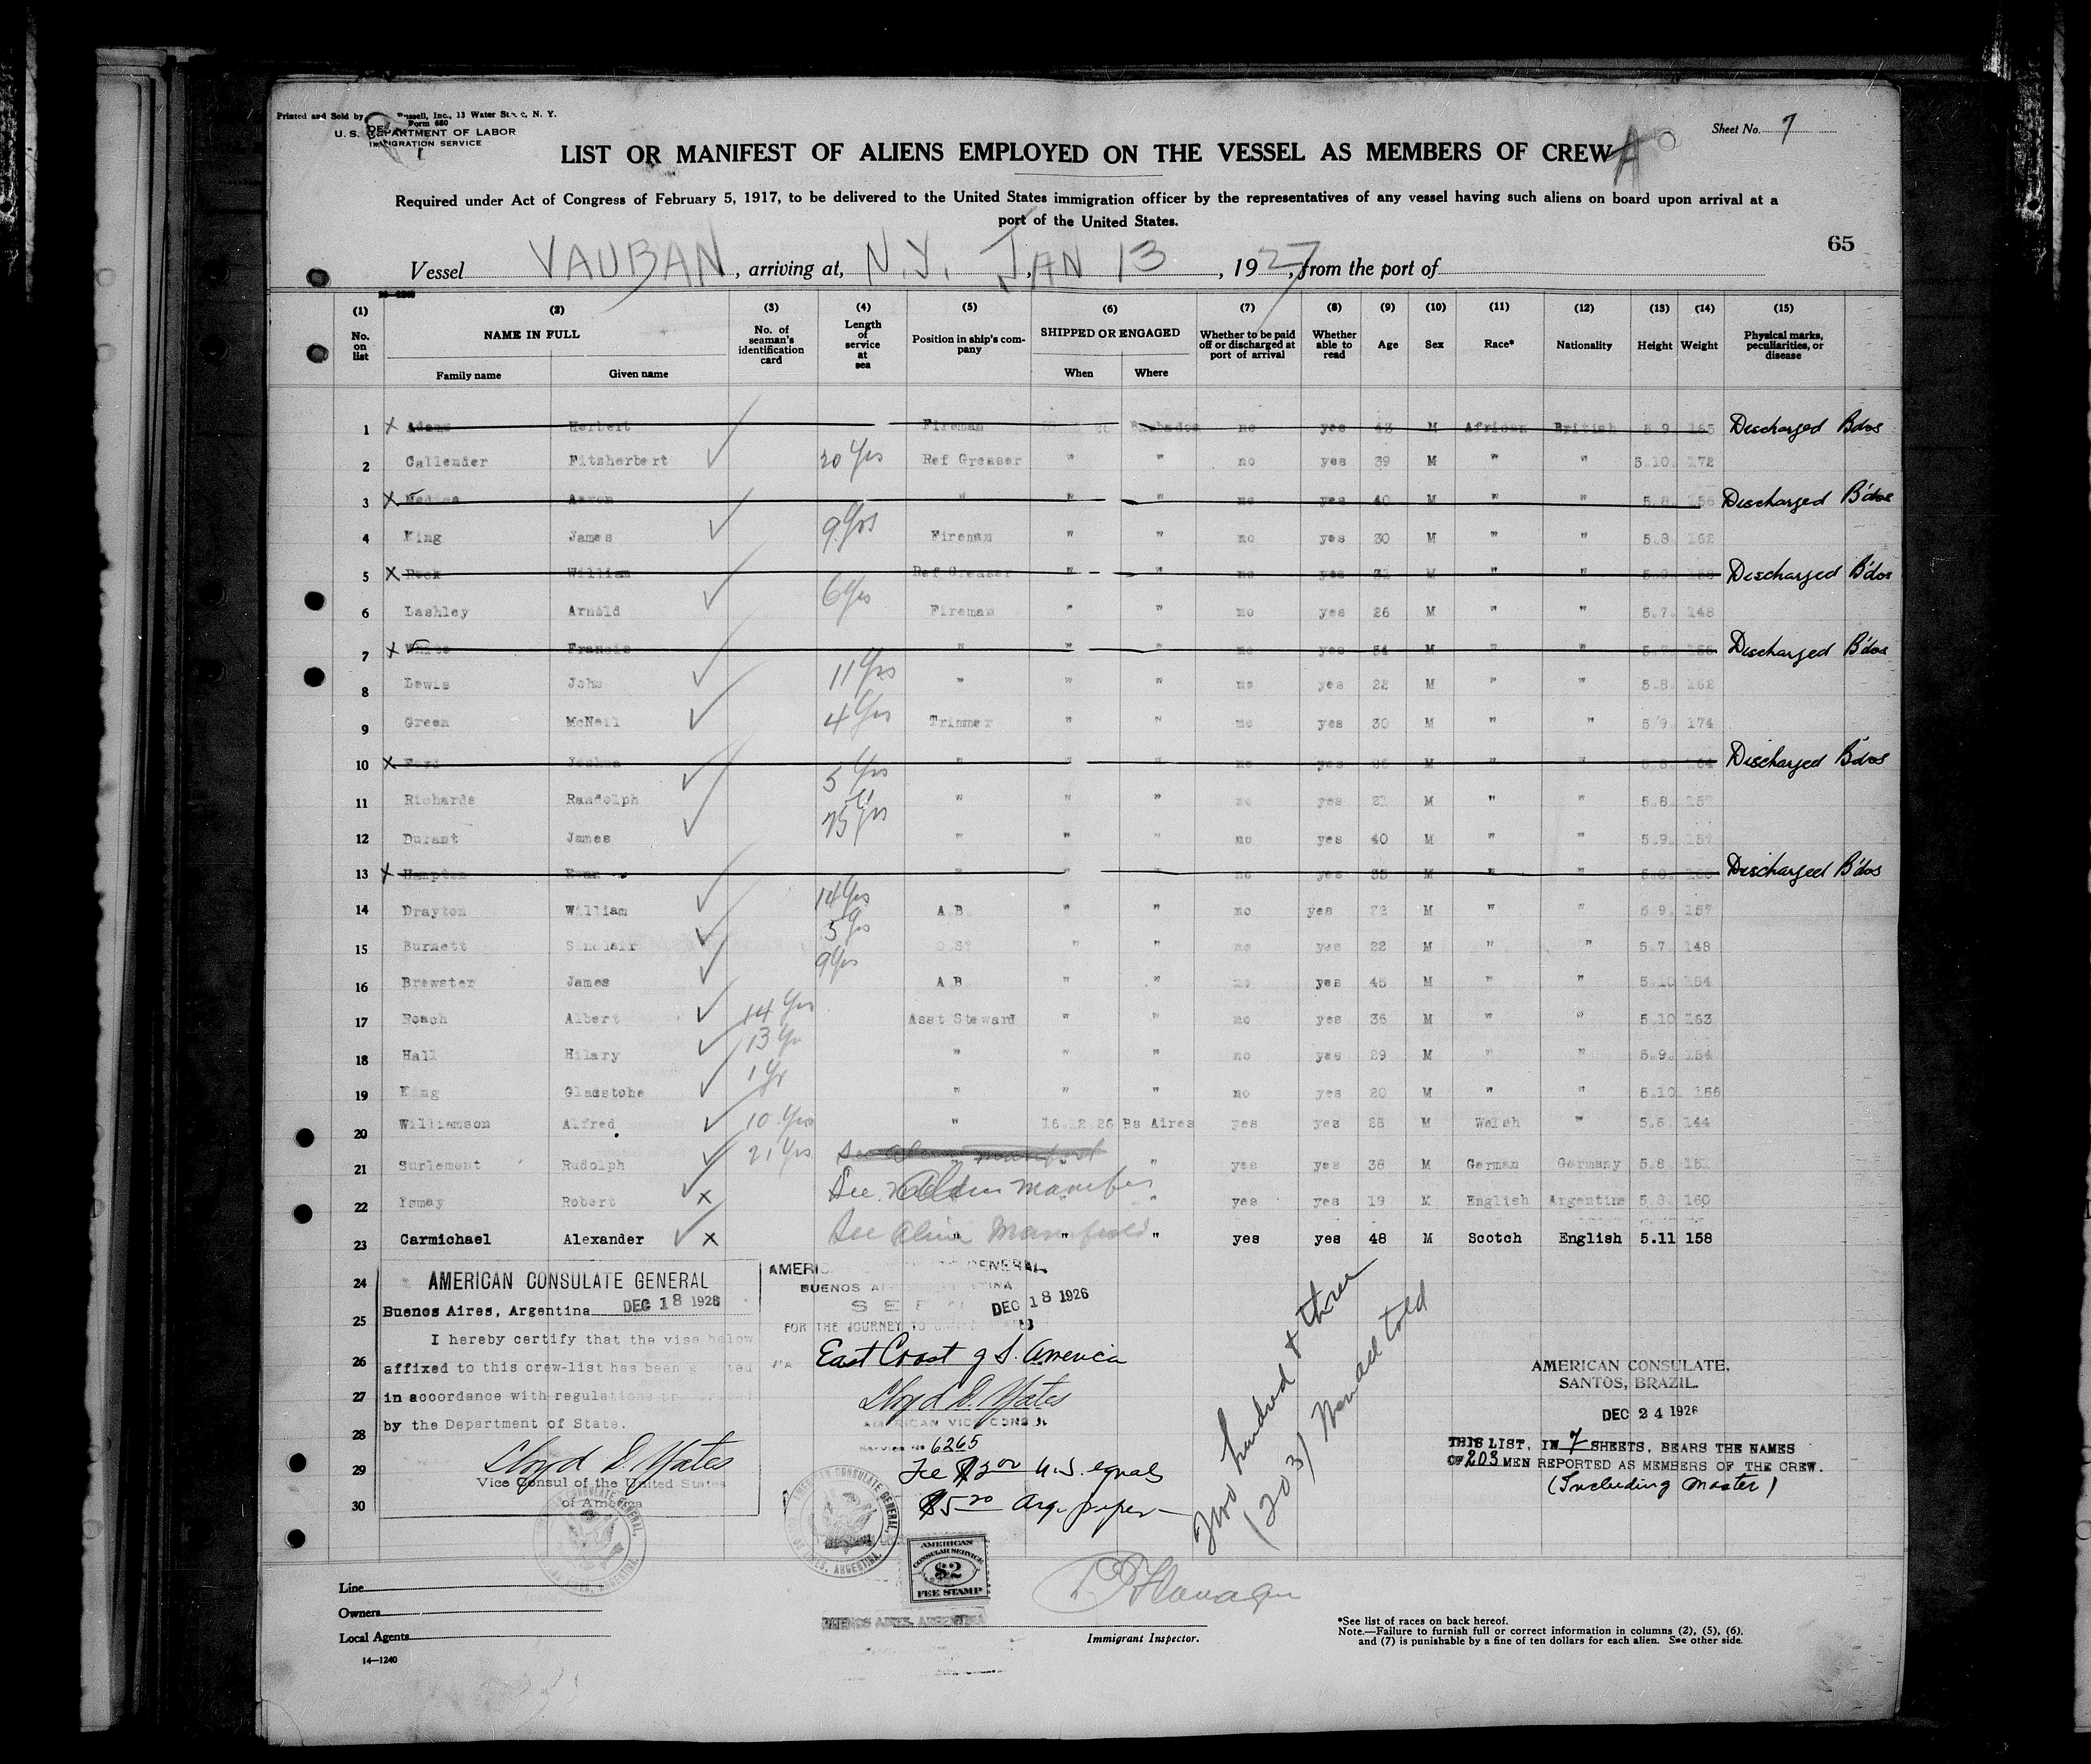 Printed and Sold by Russell, Inc., 13 Water St., N. Y.
Form 680
U. S. DEPARTMENT OF LABOR
IMMIGRATION SERVICE
Sheet No. 7
LIST OR MANIFEST OF ALIENS EMPLOYED ON THE VESSEL AS MEMBERS OF CREW
Required under Act of Congress of February 5, 1917, to be delivered to the United States immigration officer by the representatives of any vessel having such aliens on board upon arrival at a
port of the United States.
65
Vessel VAUBAN, arriving at, N.Y. JAN 13, 1927, from the port of
(1) (2) (3) (4) (5) (6) (7) (8) (9) (10) (11) (12) (13) (14) (15)
No. on list NAME IN FULL Family name Given name No. of seaman's identification card Length of service at sea Position in ship's company SHIPPED OR ENGAGED When Where Whether to be paid off or discharged at port of arrival Whether able to read Age Sex Race* Nationality Height Weight Physical marks, peculiarities, or disease
1 x Adams Herbert Fireman Barbados no yes 43 M African British 5.9 165 Discharged Bdos
2 Callender Fitzherbert 20 Yrs Ref Greaser " " no yes 39 M " " 5.10. 172
3 x Aaron " " " no yes 40 M " " 5.8. 156 Discharged B'dos
4 King James 9 Yrs Fireman " " no yes 30 M " " 5.8. 162
5 x Rock William Ref Greaser " " no yes 31 M " " Discharged B'dos
6 Lashley Arnold 6 Yrs Fireman " " no yes 26 M " " 5.7. 148
7 x White Francis " " " no yes 54 M " " Discharged B'dos
8 Lewis John 11 Yrs " " " no yes 22 M " " 5.8. 162
9 Green McNeil 4 Yrs Trimmer " " no yes 30 M " " 5 9. 174
10 x Ford Joshua " " " no yes M " " Discharged B'dos
11 Richards Randolph 5 Yrs " " " no yes 21 M " " 5.8. 157
12 Durant James 15 Yrs " " " no yes 40 M " " 5.9. 157
13 x Hampton Evan " " " no yes 35 M " " Discharged B'dos
14 Drayton William 14 Yrs A B " " no yes M " " 5.9. 157
15 Burnett Sinclair 5 Yrs " " no yes 22 M " " 5.7. 148
16 Brewster James 9 Yrs A B " " no yes 45 M " " 5.10 154
17 Roach Albert 14 Yrs Asst Steward " " no yes 36 M " " 5.10 163
18 Hall Hilary 13 Yr " " " no yes 29 M " " 5.9. 154
19 King Gladstone 1 Yr " " " no yes 20 M " " 5.10. 156
20 Williamson Alfred 10 Yrs " 16.12.26 Bs Aires yes yes 28 M Welsh " 5.6. 144
21 Surlemont Rudolph 21 Yrs " yes yes 38 M German Germany 5.8.
22 Ismay Robert x See Alien Manifes " yes yes 19 M English Argentine 5.8. 160
23 Carmichael Alexander x See Alien Manifest " " " yes yes 48 M Scotch English 5.11 158
24
25
26
27
28
29
30
AMERICAN CONSULATE GENERAL
Buenos Aires, Argentina DEC 18 1926
I hereby certify that the visa below
affixed to this crew-list has been granted
in accordance with regulations
by the Department of State.
Lloyd D. Yates
Vice Consul of the United States
of America
AMERICAN CONSULATE GENERAL
BUENOS AIRES, ARGENTINA
SEEN DEC 18 1926
FOR THE JOURNEY TO UNITED STATES
VIA East Coast of S. America
Lloyd D. Yates
AMERICAN VICE CONSUL
Service No 6265
Fee $2.00 U.S. equals
$5.00 Arg. paper
AMERICAN CONSULATE GENERAL, BUENOS AIRES, ARGENTINA.
AMERICAN
CONSULAR SERVICE
$2
FEE STAMP
BUENOS AIRES, ARGENTINA
Two hundred & three
(203)
told
AMERICAN CONSULATE,
SANTOS, BRAZIL.
DEC 24 1926
THIS LIST, IN 7 SHEETS, BEARS THE NAMES
OF 203 MEN REPORTED AS MEMBERS OF THE CREW.
(Including Master)
Line
Owners
Local Agents
14—1240
Immigrant Inspector.
*See list of races on back hereof.
Note.—Failure to furnish full or correct information in columns (2), (5), (6),
and (7) is punishable by a fine of ten dollars for each alien. See other side.